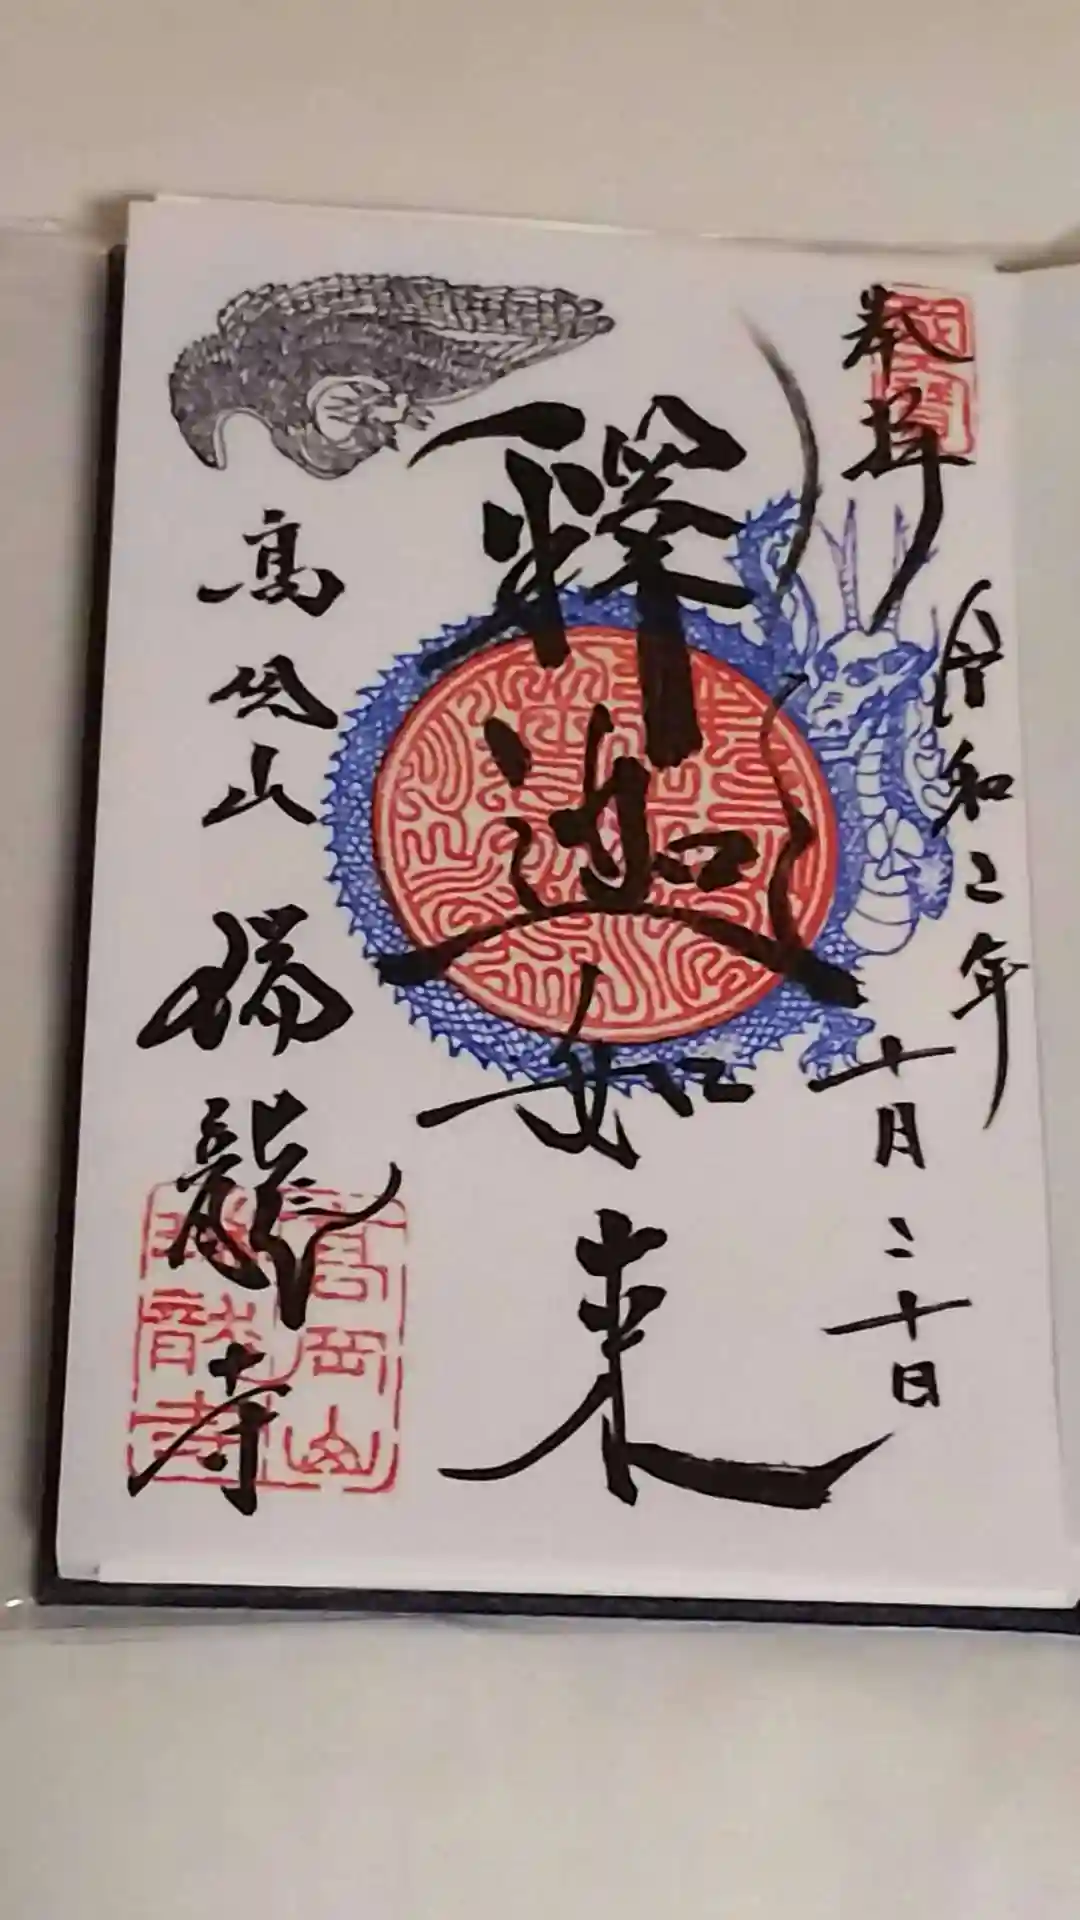 奉拝
令和二年
十月二十日
釋迦如来
高岡山 瑞龍寺
高岡山
瑞龍寺